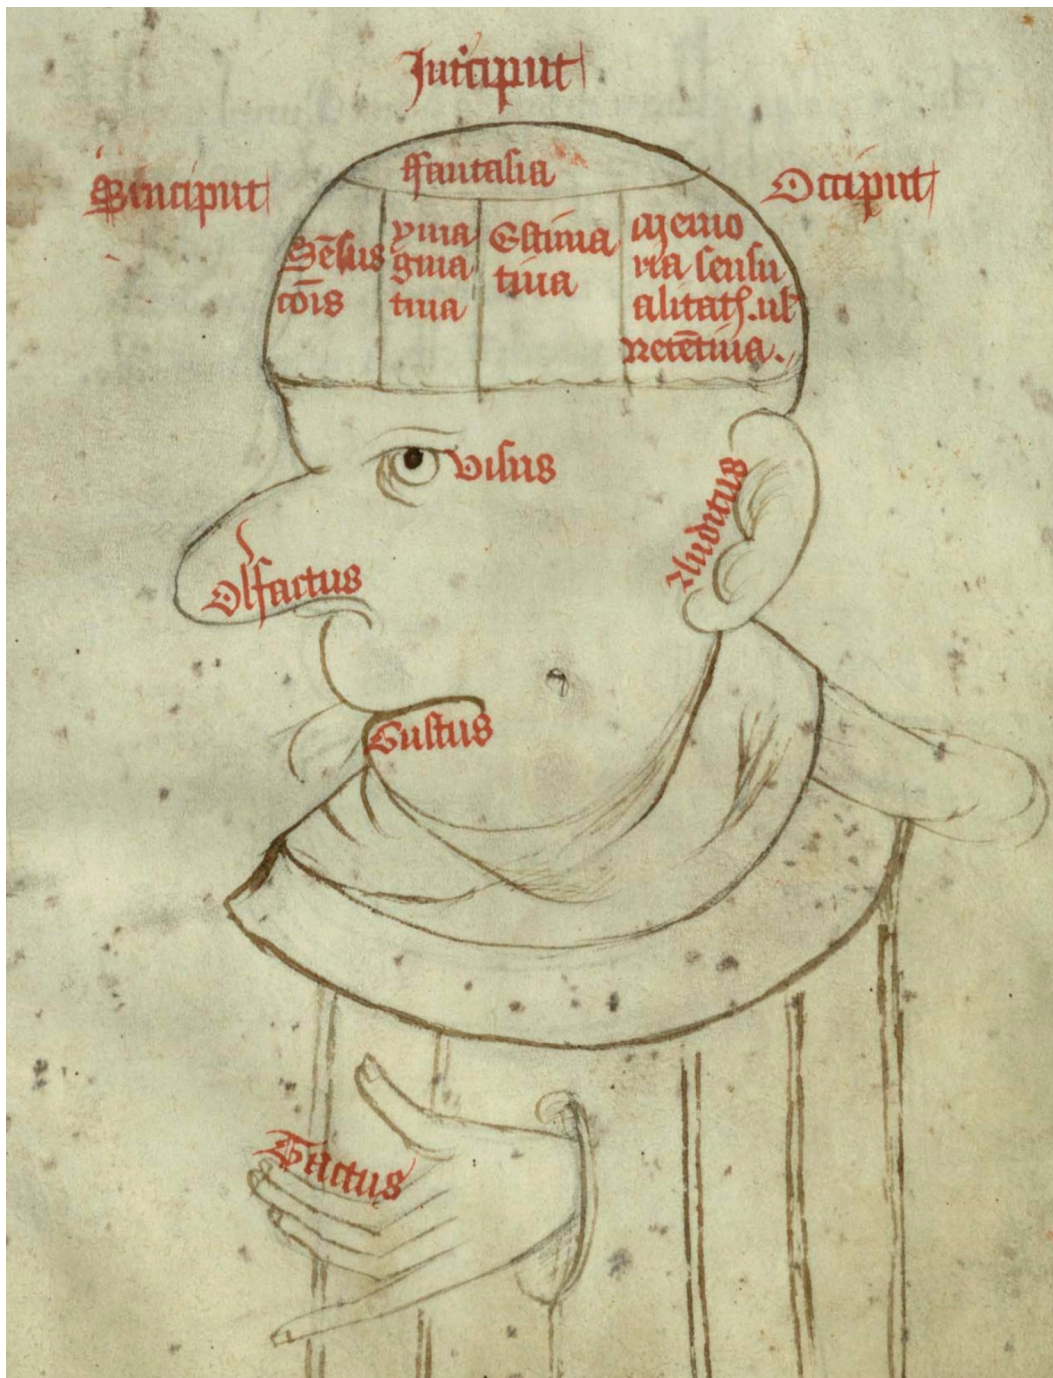 Iuciput
Sinciput
ffantasia
Occiput
Sēsus
cōis
yma
gina
tiua
Estima
tiua
Memo
ria sensu
alitatꝭ. ul̄
retētiua.
visus
Auditus
Olfactus
Gustus
Tactus